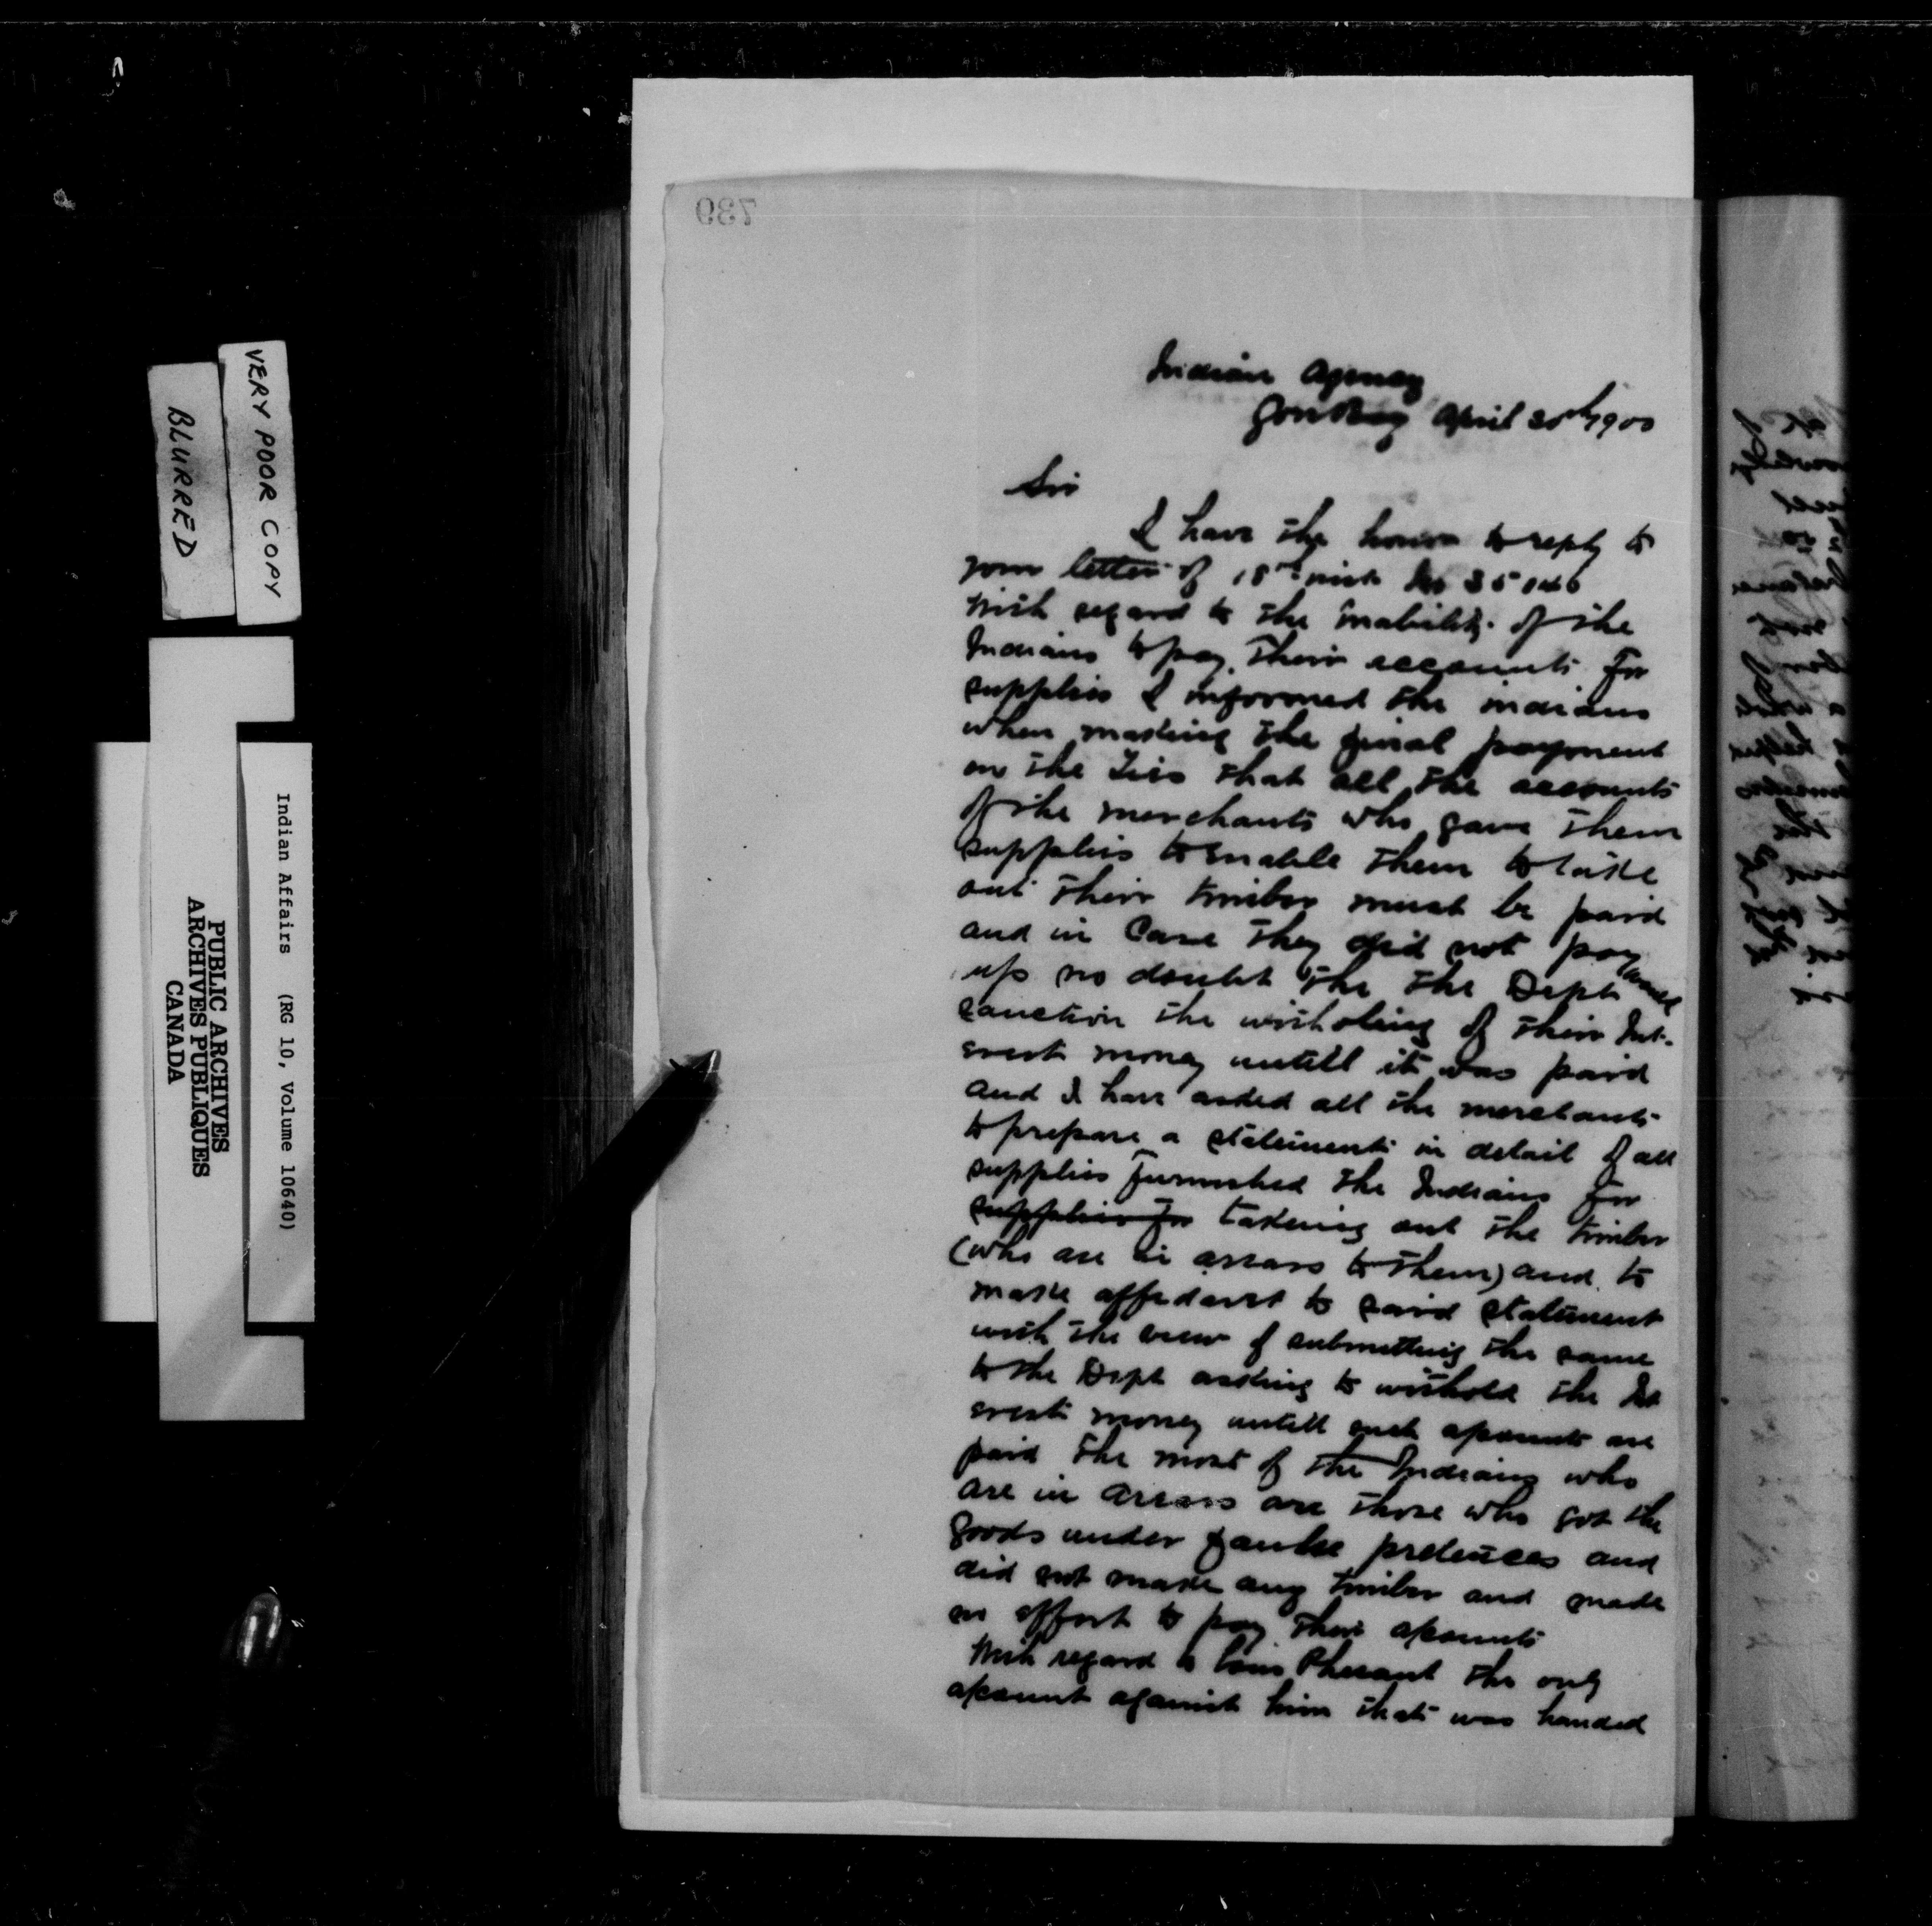 VERY POOR COPY
BLURRED
Indian Affairs (RG 10, Volume 10640)
PUBLIC ARCHIVES
ARCHIVES PUBLIQUES
CANADA
739
Indian Agency
Gore Bay April 30th 1900
Sir
I have the honor to reply to
your letter of 18th inst No
With regard to the inability of the
Indians to pay their accounts for
supplies I informed the indians
when making the final payment
on the Ties that all the accounts
of the merchants who gave them
supplies to enable them to take
out their timber must be paid
and in Case they did not pay
up no doubt the the Dept would
sanction the witholing of their Int-
erest money untill it was paid
and I have asked all the merchants
to prepare a statement in detail of all
supplies furnished the Indians for
supplies for takeing out the timber
(who are in arears to them) and to
make affedavit to said statement
with the view of submitting the same
to the Dept asking to withold the Int
erest money untill such acounts are
paid The most of the Indians who
are in arears are those who got the
goods under faulse pretences and
did not make any timber and made
no effort to pay their acounts
With regard to Louis Phesant the only
acount against him that was handed